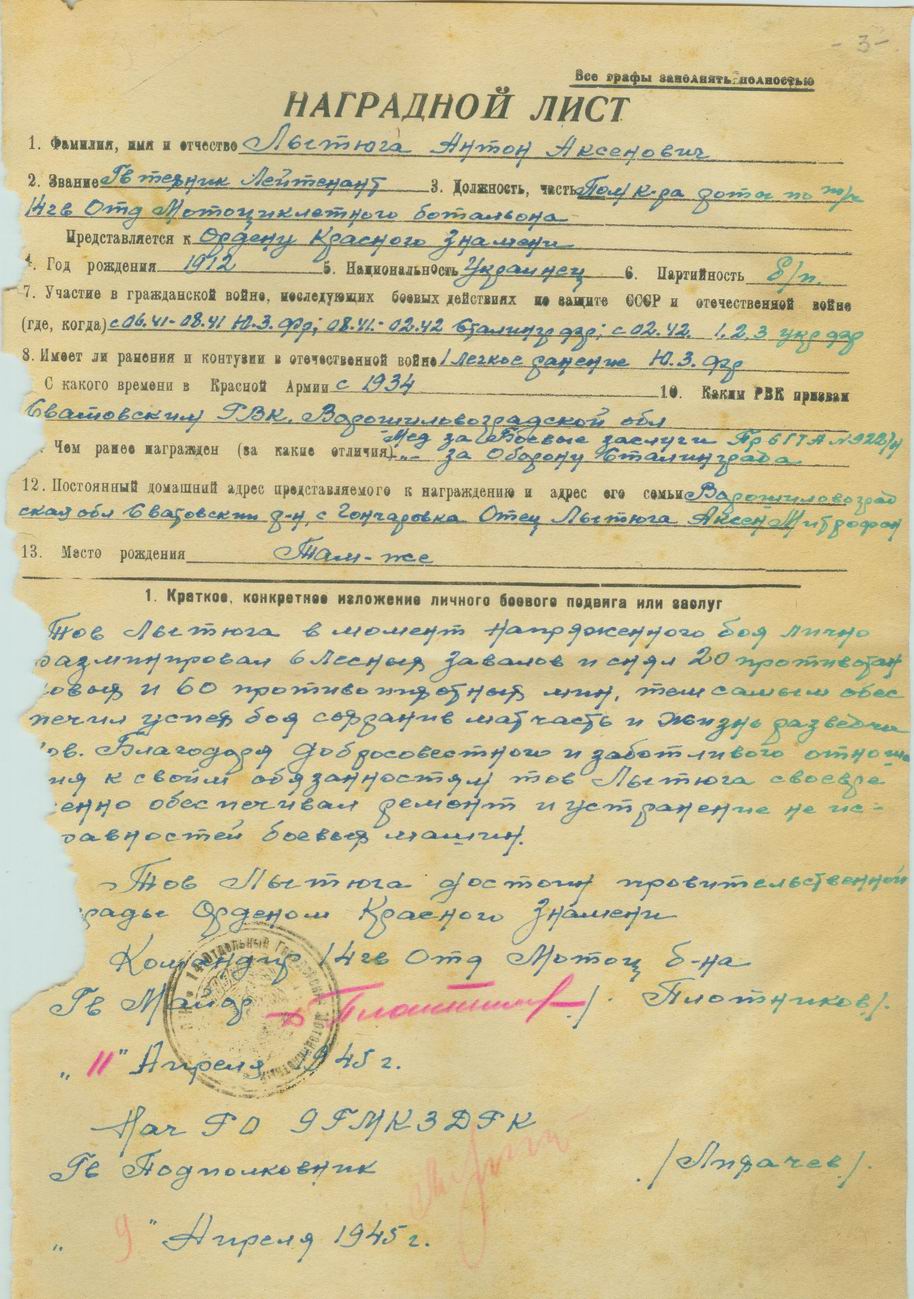 - 3 -
Все графы заполнять полностью
НАГРАДНОЙ ЛИСТ
1. Фамилия, имя и отчество Лыстюга Антон Аксенович
2. Звание Гв техник Лейтенант 3. Должность, часть Пом к-ра роты по т/ч
14 гв Отд Мотоциклетного ботальона
Представляется к Ордену Красного Знамени
4. Год рождения 1912 5. Национальность Украинец 6. Партийность б/п.
7. Участие в гражданской войне, последующих боевых действиях по защите СССР и отечественной войне
(где, когда) с 06.41-08.41 Ю.З. Фр; 08.41-02.42 Сталингр фр; с 02.42. 1.2.3 укр фр
8. Имеет ли ранения и контузии в отечественной войне 1 Легкое ранение Ю.З. Фр
С какого времени в Красной Армии с 1934 10. Каким РВК призван
Сватовским РВК. Ворошиловоградской обл
Мед за "Боевые заслуги Пр 6 ГТА N 922/н
. Чем ранее награжден (за какие отличия) -"- за Оборону Сталинграда
12. Постоянный домашний адрес представляемого к награждению и адрес его семьи Ворошиловоград
ская обл Сватовский р-н, с Гончаровка Отец Лыстюга Аксен Митрофан
13. Место рождения Там-же
1. Краткое, конкретное изложение личного боевого подвига или заслуг
Тов Лыстюга в момент напряженного боя лично
размиpировал 6 Лесных завалов и снял 20 противотан
ковых и 60 противопихотных мин, тем самым обес
печил успех боя сохранив матчасть и жизнь разведчи
ков. Благодаря добросовестного и заботливого отноше
ия к своим обязанностям тов Лыстюга своевре
енно обеспечивал ремонт и устранение не ис-
равностей боевых машин.
Тов Лыстюга достоин провительственной
грады Орденом Красного Знамени
Командир 14 гв Отд Мотоц б-на
Гв Майор /. Плотников /.
"11" Апреля 1945 г.
Нач РО 9 ГМКЗДРК
Гв Подполковник /Лихачев/.
" 9 " Апреля 1945 г.